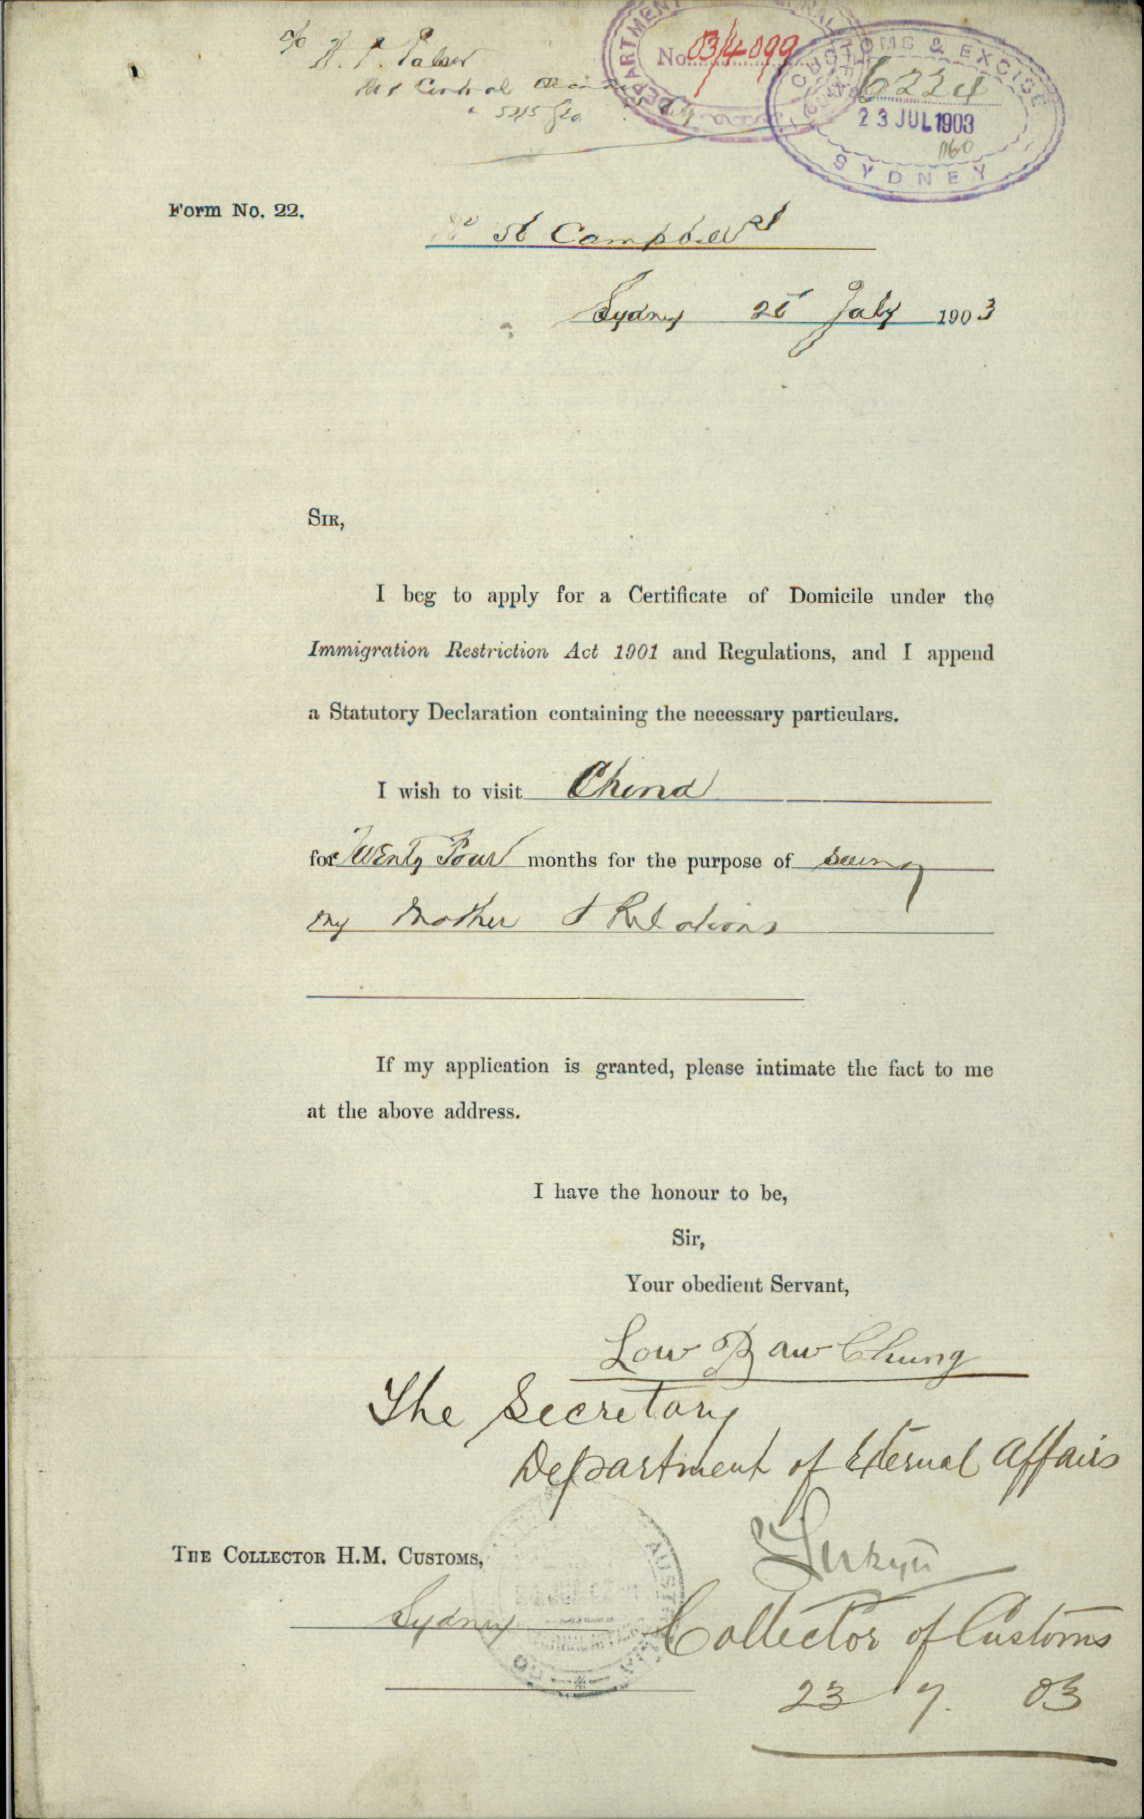 c/o
No 03/4099
CUSTOMS & EXCISE
6224
23 JUL 1903
SYDNEY
Form No. 22.
St Campbell St
Sydney July 1903
SIR,
I beg to apply for a Certificate of Domicile under the
Immigration Restriction Act 1901 and Regulations, and I append
a Statutory Declaration containing the necessary particulars.
I wish to visit China
for Twenty Four months for the purpose of seeing
my Mother & Relations
If my application is granted, please intimate the fact to me
at the above address.
I have the honour to be,
Sir,
Your obedient Servant,
Low Chung
The Secretary
Department of External Affairs
THE COLLECTOR H.M. CUSTOMS,
Sydney
Collector of Customs
23 7. 03